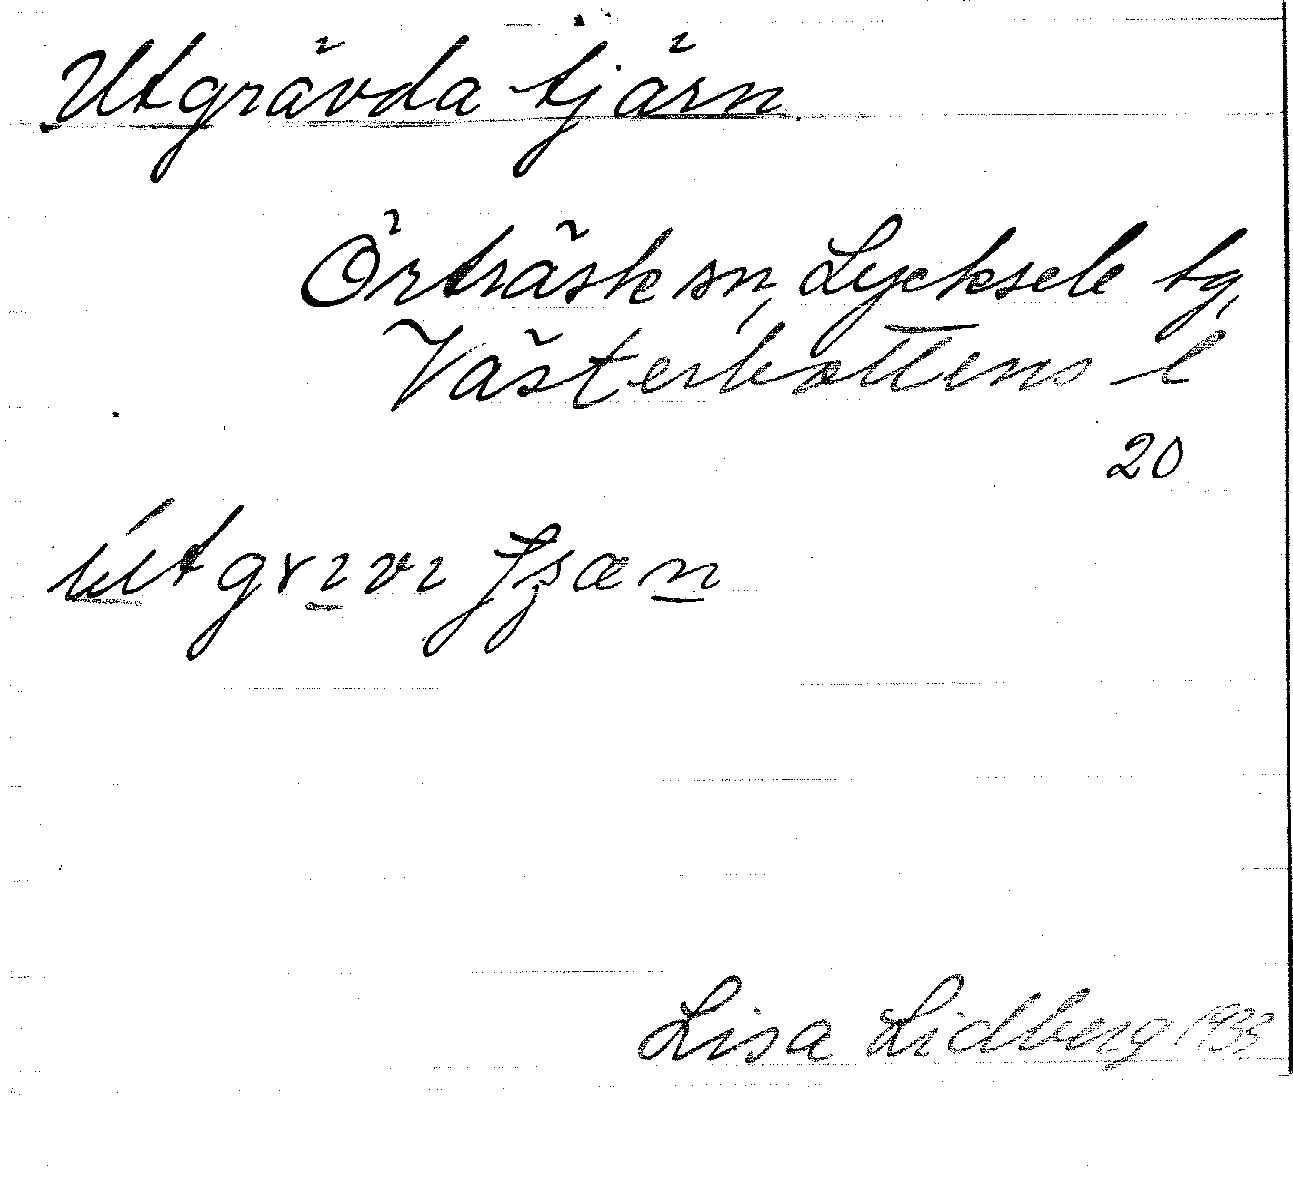 Utgrävda tjärn
Örträsk sn, Lycksele tg,
Västerbottens l
20
Lisa Lidberg 1933